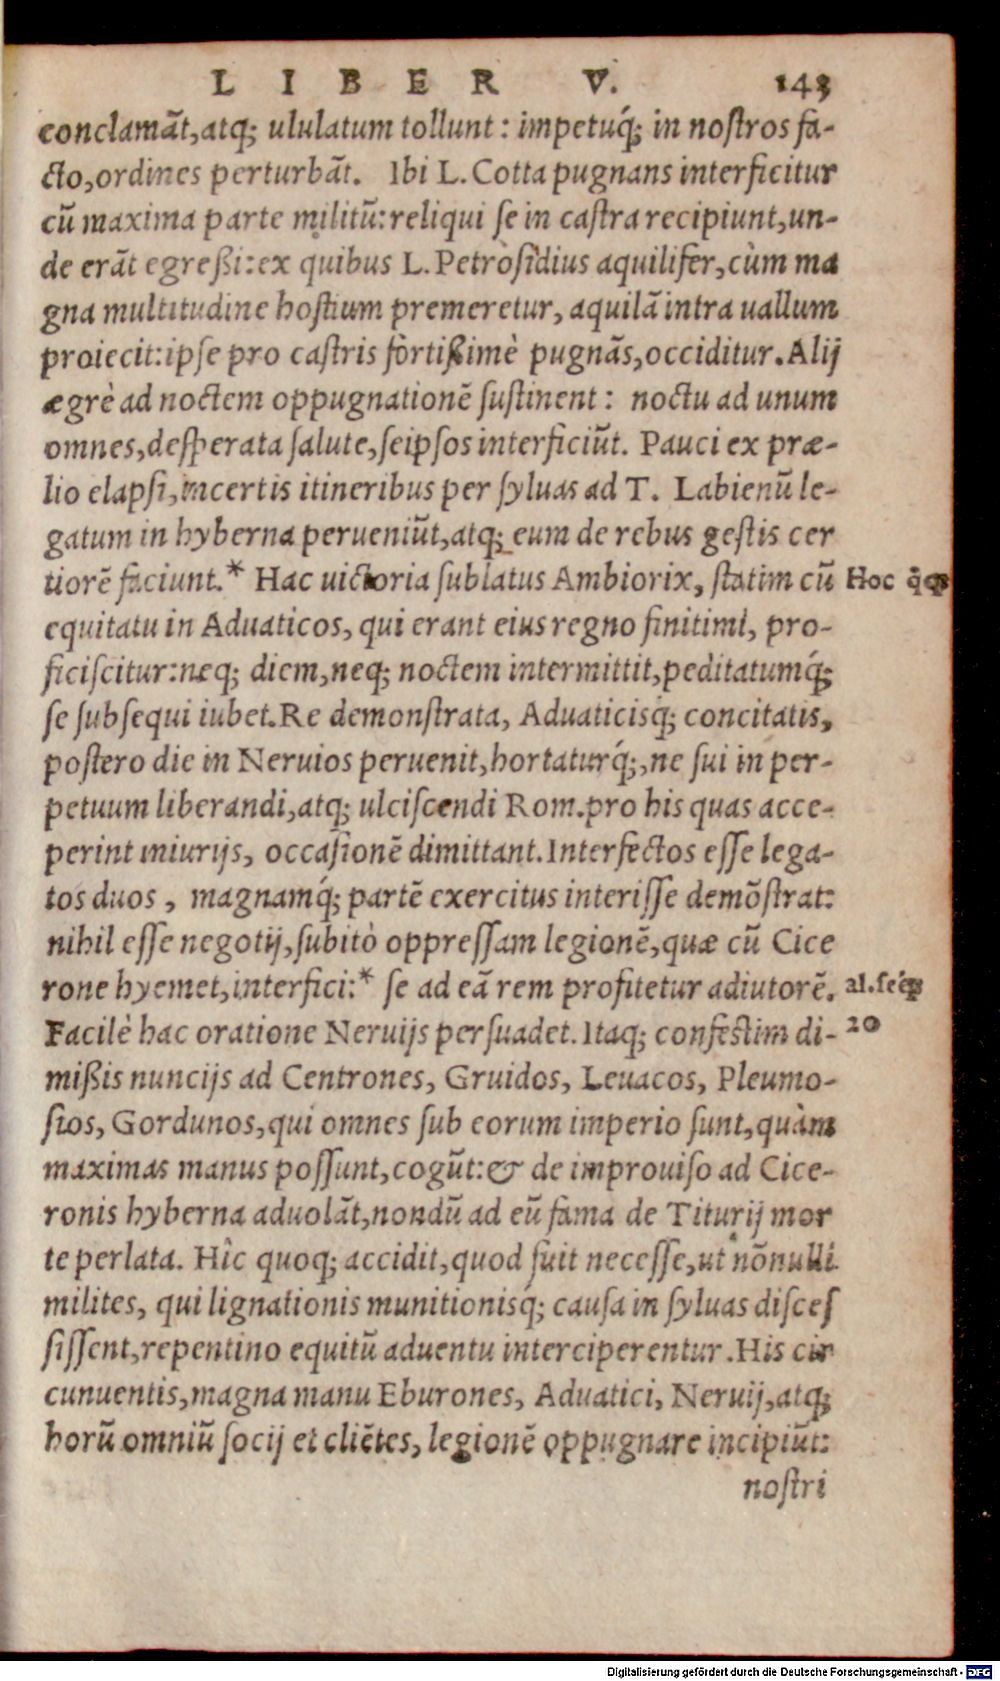 LIBER V. 143
conclamãt,atq; ululatum tollunt : impetuq́; in nostros fa-
cto,ordines perturbãt. Ibi L. Cotta pugnans interficitur
cũ maxima parte militũ:reliqui se in castra recipiunt,un-
de erãt egreßi:ex quibus L. Petròsidius aquilifer,cùm ma
gna multitudine hostium premeretur, aquilã intra uallum
proiecit:ipse pro castris fortißimè pugnãs,occiditur. Alij
ægrè ad noctem oppugnationẽ sustinent : noctu ad unum
omnes,desperata salute,seipsos interficiũt. Pauci ex præ-
lio elapsi,incertis itineribus per syluas ad T. Labienũ le-
gatum in hyberna perueniũt,atq; eum de rebus gestis cer
tiorẽ faciunt.* Hac uictoria sublatus Ambiorix, statim cũ Hoc
equitatu in Aduaticos, qui erant eius regno finitimi, pro-
ficiscitur:neq; diem,neq; noctem intermittit,peditatumq́;
se subsequi iubet.Re demonstrata, Aduaticisq; concitatis,
postero die in Neruios peruenit,hortaturq́;,ne sui in per-
petuum liberandi,atq; ulciscendi Rom.pro his quas acce-
perint iniurijs, occasionẽ dimittant.Interfectos esse lega-
tos duos , magnamq́; partẽ exercitus interisse demõstrat:
nihil esse negotij,subitò oppressam legionẽ,quæ cũ Cice
rone hyemet,interfici:* se ad eã rem profitetur adiutorẽ. al.
Facilè hac oratione Neruijs persuadet. Itaq; confestim di- 20
mißis nuncijs ad Centrones, Gruidos, Leuacos, Pleumo-
sios, Gordunos,qui omnes sub eorum imperio sunt,quàm
maximas manus possunt,cogũt:& de improuiso ad Cice-
ronis hyberna aduolãt,nondũ ad eũ fama de Titurij mor
te perlata. Hîc quoq; accidit,quod fuit necesse,ut nõnulli
milites, qui lignationis munitionisq́; causa in syluas disces
sissent,repentino equitũ aduentu interciperentur.His cir
cunuentis,magna manu Eburones, Aduatici, Neruij,atq;
horũ omniũ socij et cliẽtes, legionẽ oppugnare incipiũt:
nostri
Digitalisierung gefördert durch die Deutsche Forschungsgemeinschaft - DFG